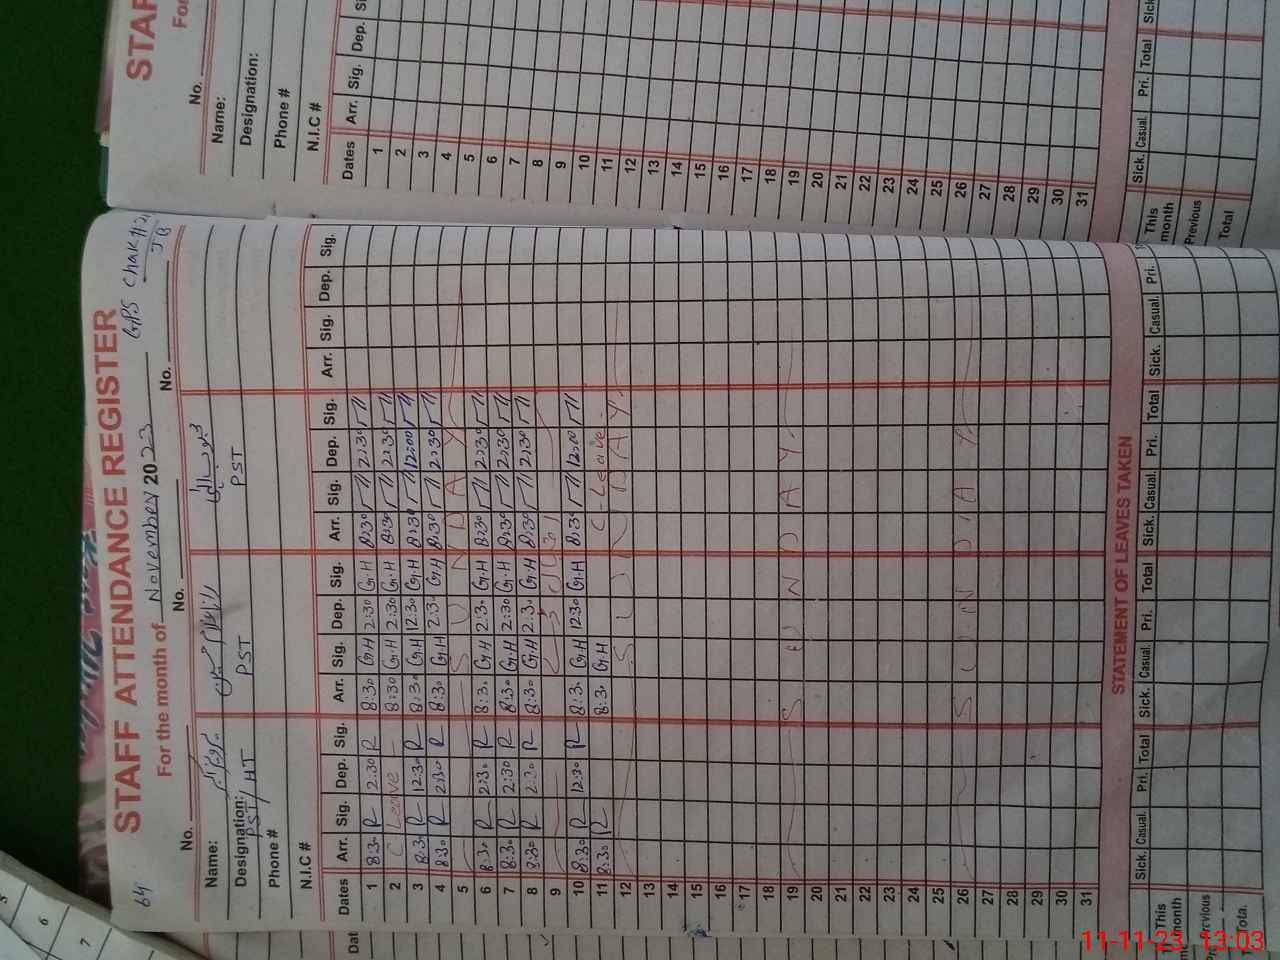 64
STAFF ATTENDANCE REGISTER
GPS Chak #
JB
For the month of November 2023
No. No. No. No.
Name:
Designation: PST/HT PST PST
Phone #
N.I.C #
Dates Arr. Sig. Dep. Sig. Arr. Sig. Dep. Sig. Arr. Sig. Dep. Sig. Arr. Sig. Dep. Sig.
1 8:30 R 2:30 R 8:30 G.H 2:30 G.H 8:30 2:30
2 C Leave 8:30 G.H 2:30 G.H 8:30 2:30
3 8:30 R 12:30 R 8:30 G.H 12:30 G.H 8:30 12:00
4 8:30 R 2:30 R 8:30 G.H 2:30 G.H 8:30 2:30
5 S U N D A Y
6 8:30 R 2:30 R 8:30 G.H 2:30 G.H 8:30 2:30
7 8:30 R 2:30 R 8:30 G.H 2:30 G.H 8:30 2:30
8 8:30 R 2:30 R 8:30 G.H 2:30 G.H 8:30 2:30
9
10 8:30 R 12:30 R 8:30 G.H 12:30 G.H 8:30 12:00
11 8:30 R 8:30 G.H C-Leave
12 S U N D A Y
13
14
15
16
17
18
19 S U N D A Y
20
21
22
23
24
25
26 S U N D A Y
27
28
29
30
31
STATEMENT OF LEAVES TAKEN
Sick. Casual. Pri. Total Sick. Casual. Pri. Total Sick. Casual. Pri. Total Sick. Casual. Pri.
This month
Previous
Total
STAF
For
No.
Name:
Designation:
Phone #
N.I.C #
Dates Arr. Sig. Dep.
1
2
3
4
5
6
7
8
9
10
11
12
13
14
15
16
17
18
19
20
21
22
23
24
25
26
27
28
29
30
31
Sick. Casual. Pri. Total Sick.
This month
Previous
Total
5
6
7
11-11-23 13:03